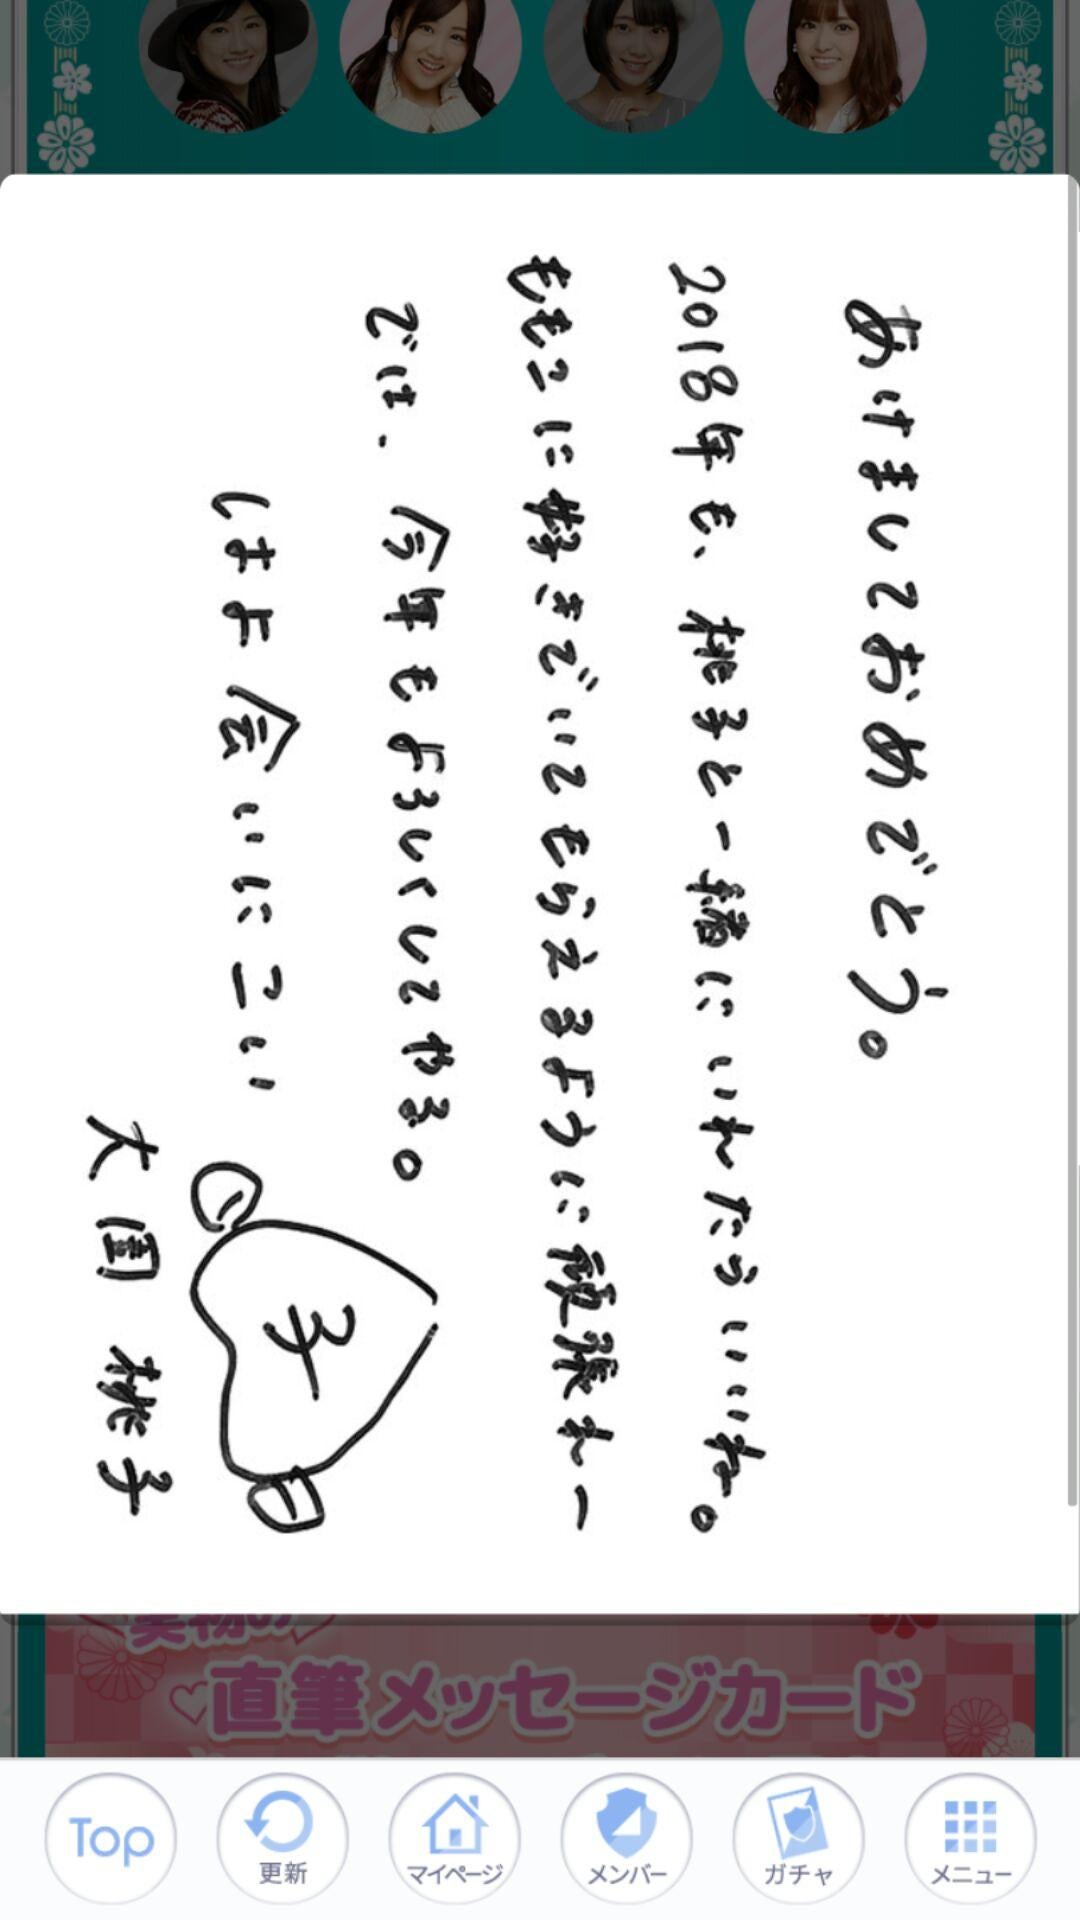 あけましておめでとう。
2018年も、桃子と一緒にいれたらいいね。
ももこに好きでいてもらえるように頑張れー
では、今年もよろしくしてやる。
はよ会いにこい
大園 桃子
子
実物の
直筆メッセージカード
Top
更新
マイページ
メンバー
ガチャ
メニュー